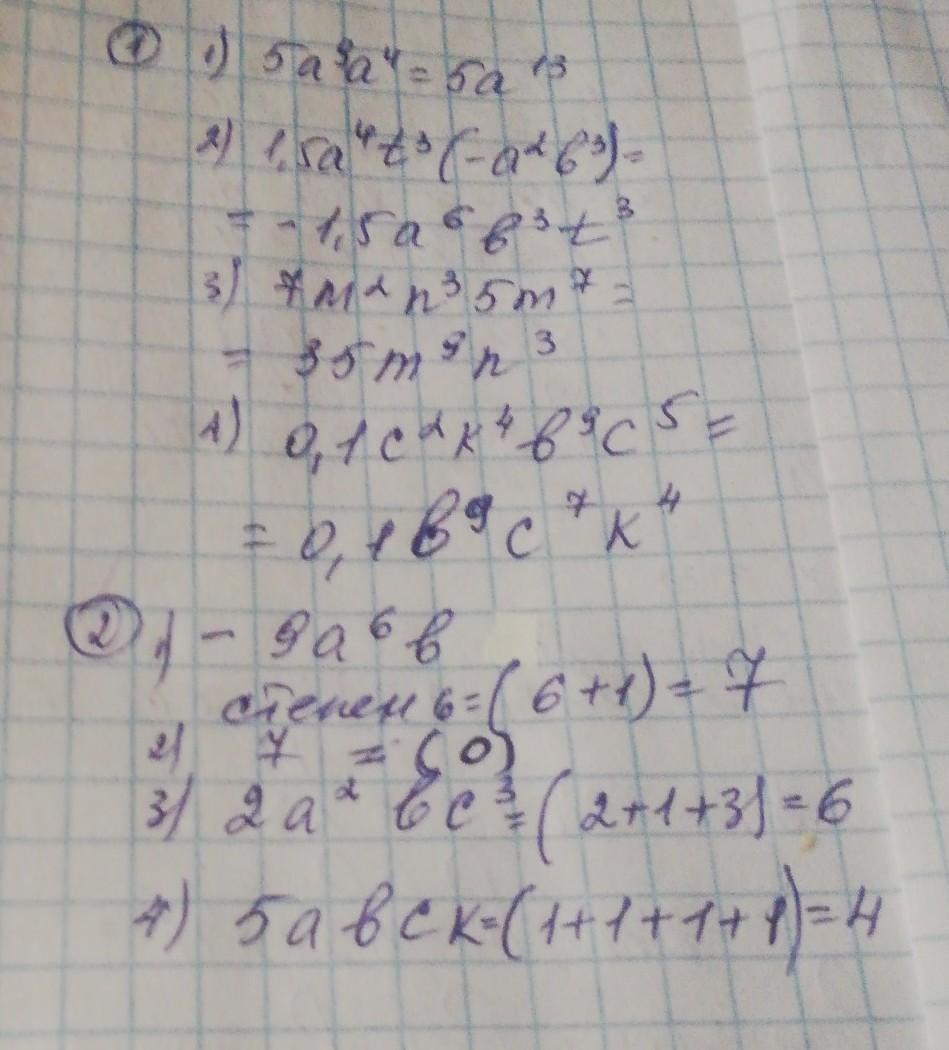 ① 1) 5a⁹a⁴ = 5a¹³
2) 1,5a⁴t³(-a²b³) =
= -1,5a⁶b³t³
3) 7m²n³5m⁷ =
= 35m⁹n³
4) 0,1c²k⁴b⁹c⁵ =
= 0,1b⁹c⁷k⁴
② 1) - 9a⁶b
степень = (6+1) = 7
2) 7 = (0)
3) 2a²bc³ = (2+1+3) = 6
4) 5abck = (1+1+1+1) = 4